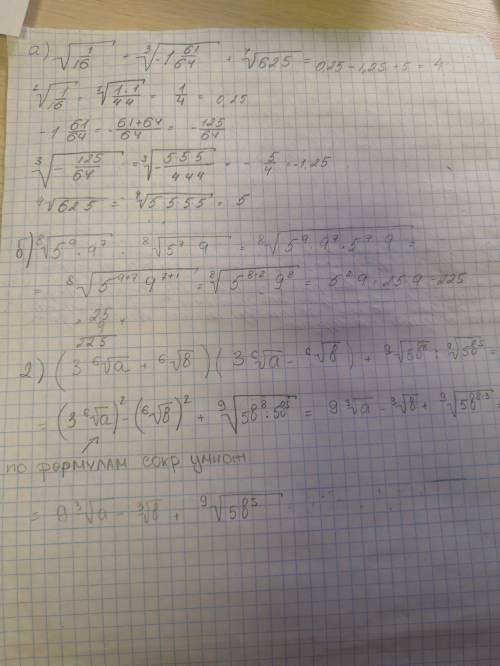 а) √(1/16) + ³√(-1 61/64) + ⁴√625 = 0,25 - 1,25 + 5 = 4
²√(1/16) = ²√(1·1/44) = 1/4 = 0,25
-1 61/64 = -(61+64)/64 = -125/64
³√(-125/64) = ³√(-5·5·5/444) = -5/4 = -1,25
⁴√625 = ⁴√5555 = 5
б) ⁸√(5⁹·9⁷) · ⁸√(5⁷·9) = ⁸√(5⁹·9⁷·5⁷·9) =
= ⁸√(5⁹⁺⁷ 9⁷⁺¹) = ⁸√(5⁸·² · 9⁸) = 5²·9 = 25·9 = 225
25
9
225
2) (3 ⁶√a + ⁶√в) (3 ⁶√a - ⁶√в) + ⁹√5в⁸ : ⁹√5в⁵ =
= (3 ⁶√a)² - (⁶√в)² + ⁹√(5в⁸ : 5в⁵) = 9 ³√a - ³√в + ⁹√(5в⁸·³)
по формулам сокр умнож.
= 9 ³√a - ³√в + ⁹√(5в⁵)